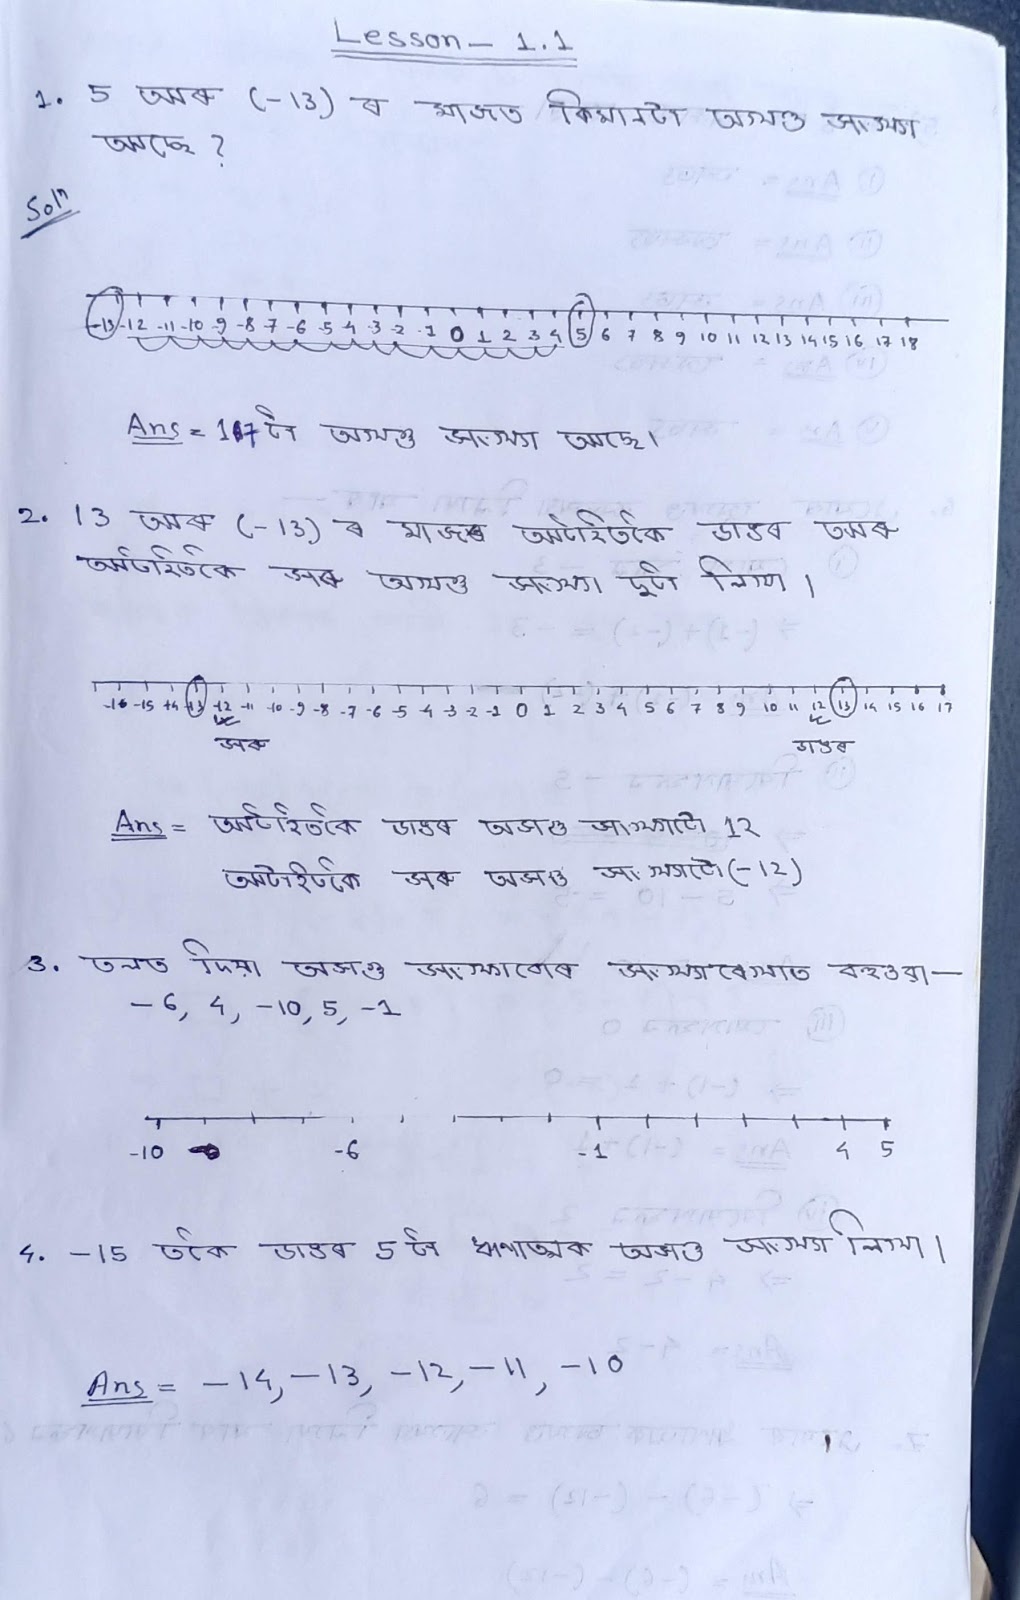 Lesson - 1.1
1. 5 আৰু (-13) ৰ মাজত কিমানটা অখণ্ড সংখ্যা
আছে ?
Solⁿ
-13 -12 -11 -10 -9 -8 -7 -6 -5 -4 -3 -2 -1 0 1 2 3 4 5 6 7 8 9 10 11 12 13 14 15 16 17 18
Ans = 17 টা অখণ্ড সংখ্যা আছে।
2. 13 আৰু (-13) ৰ মাজৰ আটাইতকৈ ডাঙৰ আৰু
আটাইতকৈ সৰু অখণ্ড সংখ্যা দুটা লিখা।
-16 -15 -14 -13 -12 -11 -10 -9 -8 -7 -6 -5 -4 -3 -2 -1 0 1 2 3 4 5 6 7 8 9 10 11 12 13 14 15 16 17
সৰু ডাঙৰ
Ans = আটাইতকৈ ডাঙৰ অখণ্ড সংখ্যাটো 12
আটাইতকৈ সৰু অখণ্ড সংখ্যাটো (-12)
3. তলত দিয়া অখণ্ড সংখ্যাবোৰ সংখ্যাৰেখাত বহুওৱা—
-6, 4, -10, 5, -1
-10 -6 -1 4 5
4. -15 তকৈ ডাঙৰ 5 টা ঋণাত্মক অখণ্ড সংখ্যা লিখা।
Ans = -14, -13, -12, -11, -10